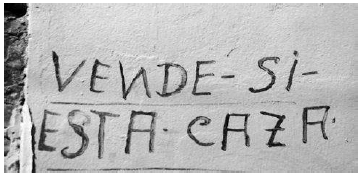 VENDE-Si-
ESTA·CAZA·